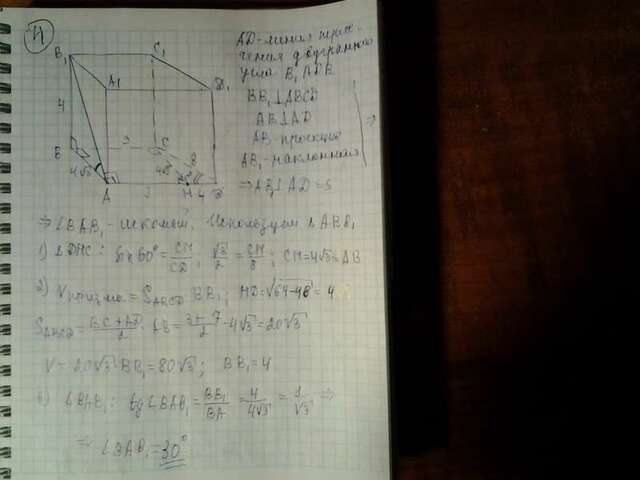 11
B₁
C₁
A₁
D₁
4
3
C
8
B
4√3
A
H
4
D
AD - линия пересе-
чения двугранного
угла B₁ADB
BB₁⊥ABCD
AB⊥AD
AB - проекция
AB₁ - наклонная
⇒
⇒ AB₁⊥AD ⇒
⇒ ∠BAB₁ - искомый. Используем Δ ABB₁
1) ΔDHC: sin 60° = CH/CD; √3/2 = CH/8; CH=4√3=AB
2) Vпризмы = S_ABCD · BB₁; HD=√64-48 = 4
S_ABCD = BC+AD/2 · AB = 3+7/2 · 4√3 = 20√3
V = 20√3 · BB₁ = 80√3; BB₁ = 4
3) ΔBAB₁: tg∠BAB₁ = BB₁/BA = 4/4√3 = 1/√3 ⇒
⇒ ∠BAB₁ = 30°